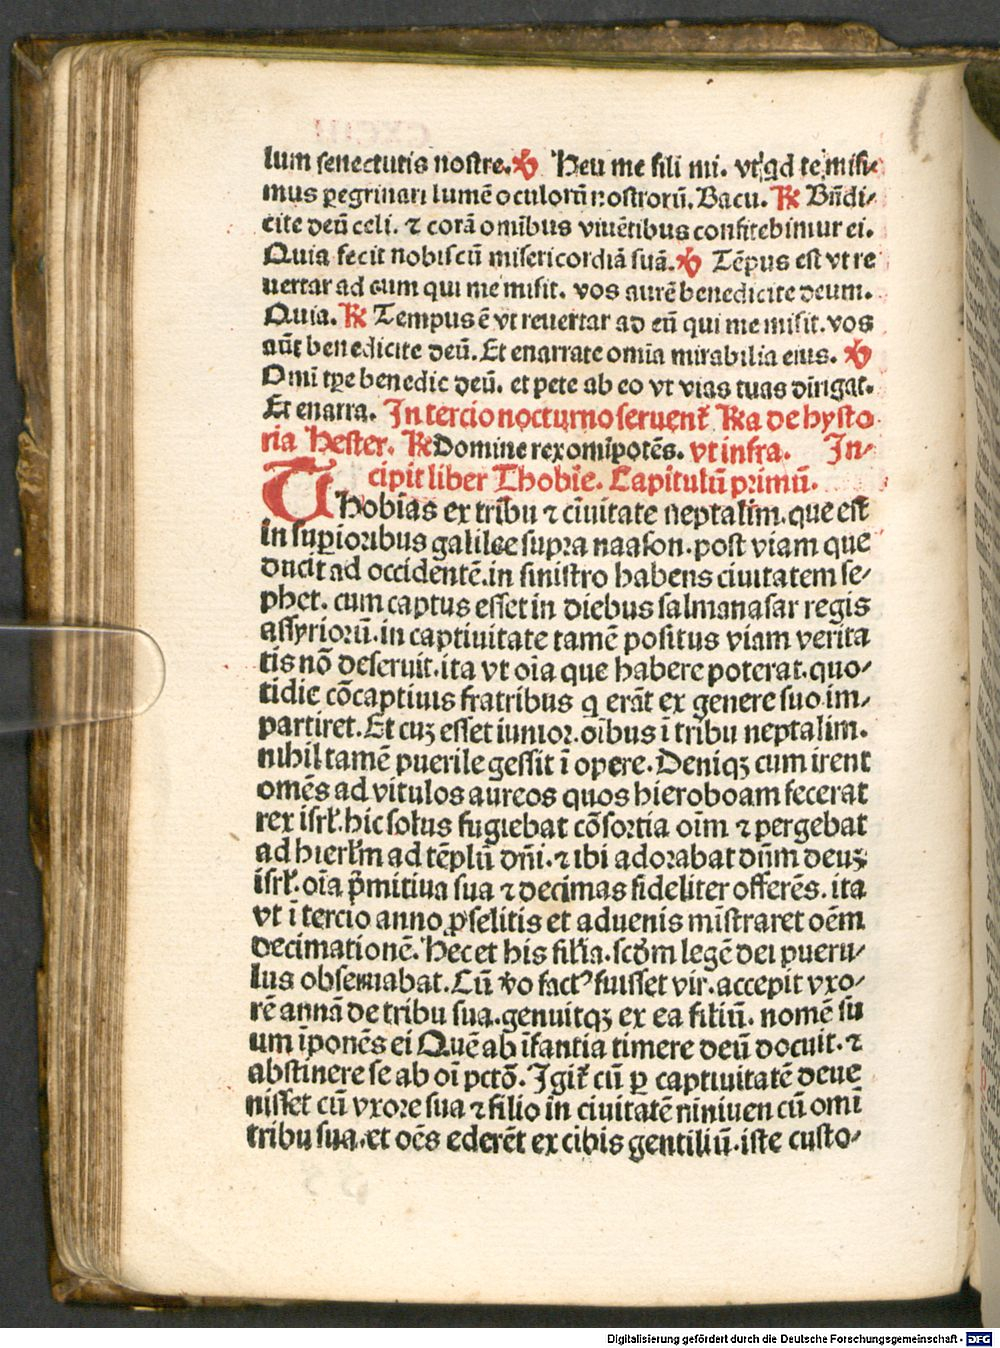 lum senectutis nostre. ℣ Heu me fili mi. vt qd te misi-
mus peregrinari lumē oculorū nostrorū. Bacu. ℞ Bn̄di-
cite deū celi. ⁊ corā omībus viuētibus confitebimur ei.
Quia fecit nobiscū misericordiā suā. ℣ Tēpus est vt re
uertar ad eum qui me misit. vos autē benedicite deum.
Quia. ℞ Tempus ē vt reuertar ad eū qui me misit. vos
aūt benedicite deū. Et enarrate omīa mirabilia eius. ℣
Omī tp̄e benedic deū. et pete ab eo vt vias tuas dirigat.
Et enarra. In tercio nocturno seruent᷑ ℞a de hysto
ria Hester. ℞ Domine rex omīpotēs. vt infra. In-
cipit liber Thobie. Capitulū primū.
Thobias ex tribu ⁊ ciuitate neptalim. que est
in supioribus galilee supra naason. post viam que
ducit ad occidentē. in sinistro habens ciuitatem se-
phet. cum captus esset in diebus salmanasar regis
assyriorū. in captiuitate tamē positus viam verita
tis nō deseruit. ita vt oīa que habere poterat. quo-
tidie cōcaptiuis fratribus q erāt ex genere suo im-
partiret. Et cuꝫ esset iunior. oībus ī tribu neptalim.
nihil tamē puerile gessit ī opere. Deniqꝫ cum irent
omēs ad vitulos aureos quos hieroboam fecerat
rex isrl̄. hic solus fugiebat cōsortia oīm ⁊ pergebat
ad hierl̄m ad tēplū dn̄i. ⁊ ibi adorabat dn̄m deuꝫ
isrl̄. oīa p̄mitiua sua ⁊ decimas fideliter offerēs. ita
vt ī tercio anno ꝓselitis et aduenis mīstraret oēm
decimationē. Hec et his sīlia. scd̄m legē dei pueru-
lus obseruabat. Cū v̄o factꝰ fuisset vir. accepit vxo-
rē annā de tribu sua. genuitqꝫ ex ea filiū. nomē su
um īponēs ei Quē ab īfantia timere deū docuit. ⁊
abstinere se ab oī pctō. Igit᷑ cū ꝑ captiuitatē deue
nisset cū vxore sua ⁊ filio in ciuitatē niniuen cū omī
tribu sua. et oēs ederēt ex cibis gentiliū. iste custo-
Digitalisierung gefördert durch die Deutsche Forschungsgemeinschaft - DFG